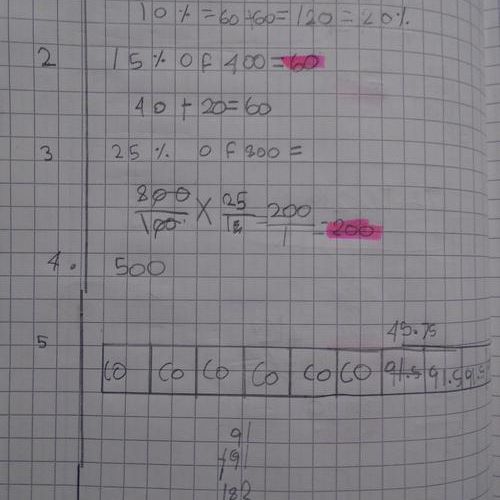 10% = 60 + 60 = 120 = 20%
2 15% Of 400 = 60
40 + 20 = 60
3 25% Of 800 =
800/100 X 25/1 = 200/1 = 200
4. 500
5
45.75
CO CO CO CO CO CO 91.5 91.5 91.5
91
+91
182